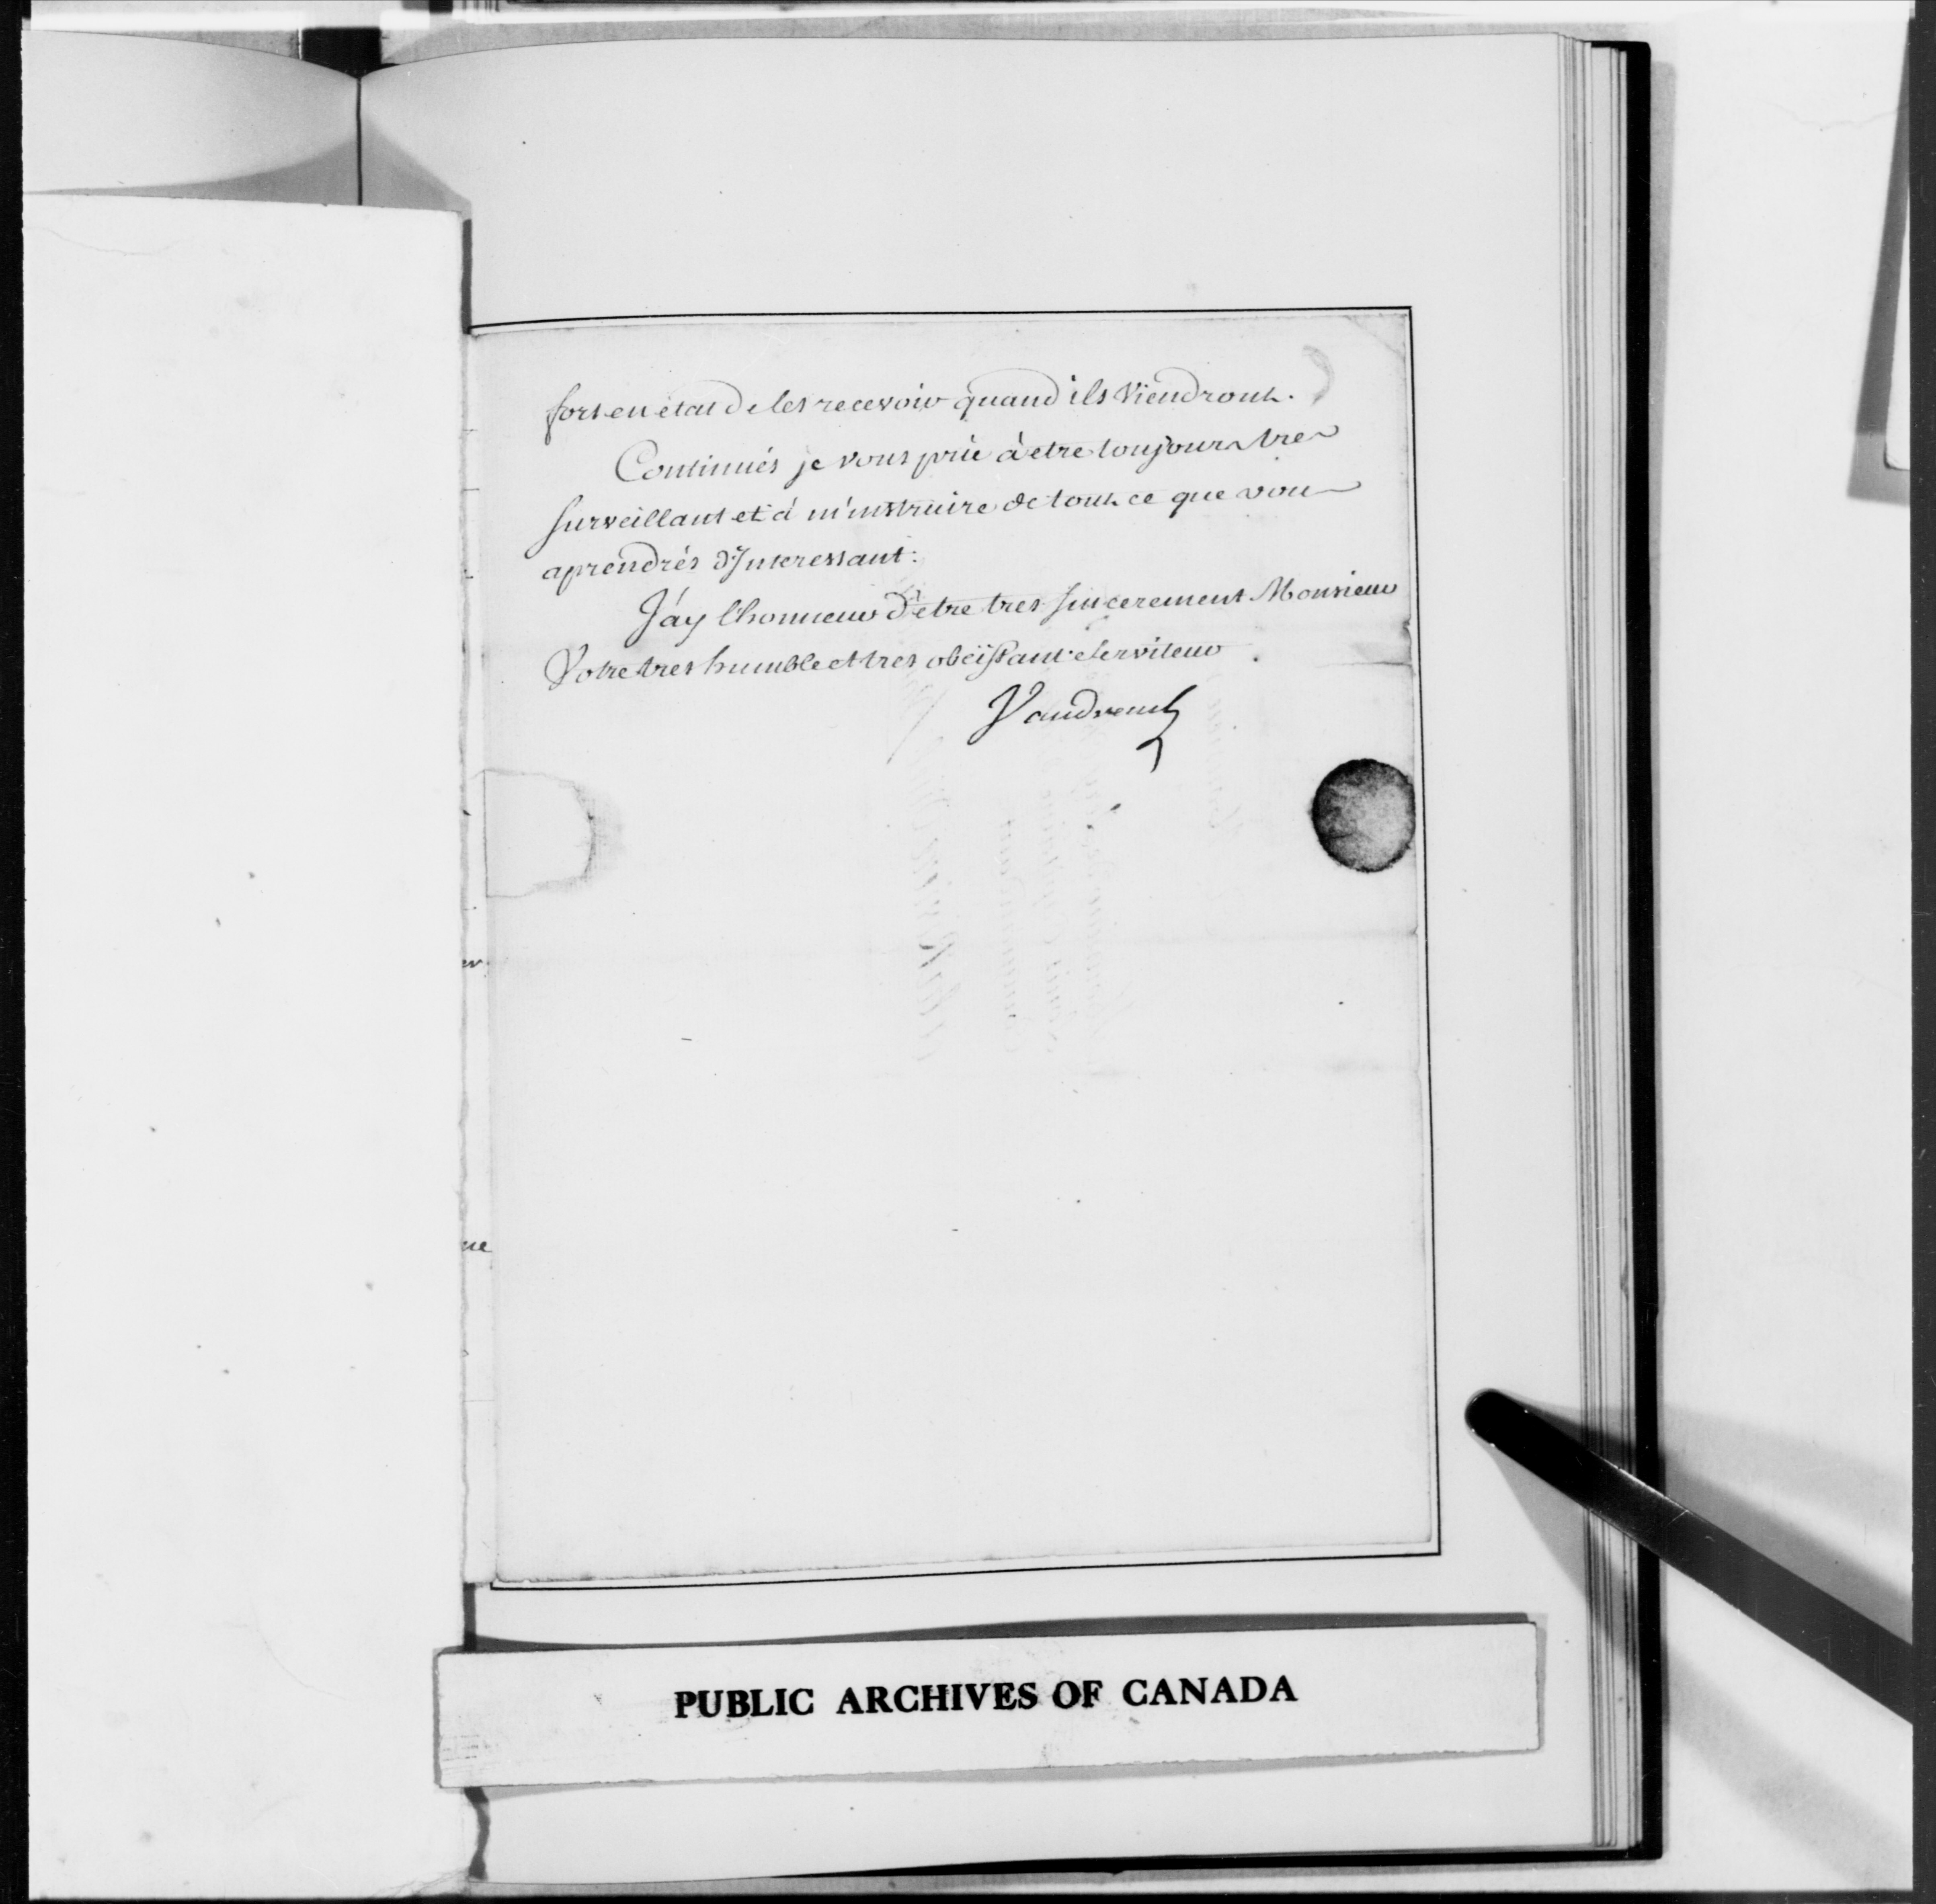 fort en état de les recevoir quand ils Viendront.
Continués je vous prie à etre toujours tres
surveillant et à m'instruire de tout ce que vous
aprendrés d'Interessant.
J'ay l'honneur d'etre tres sincerement Monsieur
Votre tres humble et tres obéissant serviteur
Vaudreuil
ue
PUBLIC ARCHIVES OF CANADA